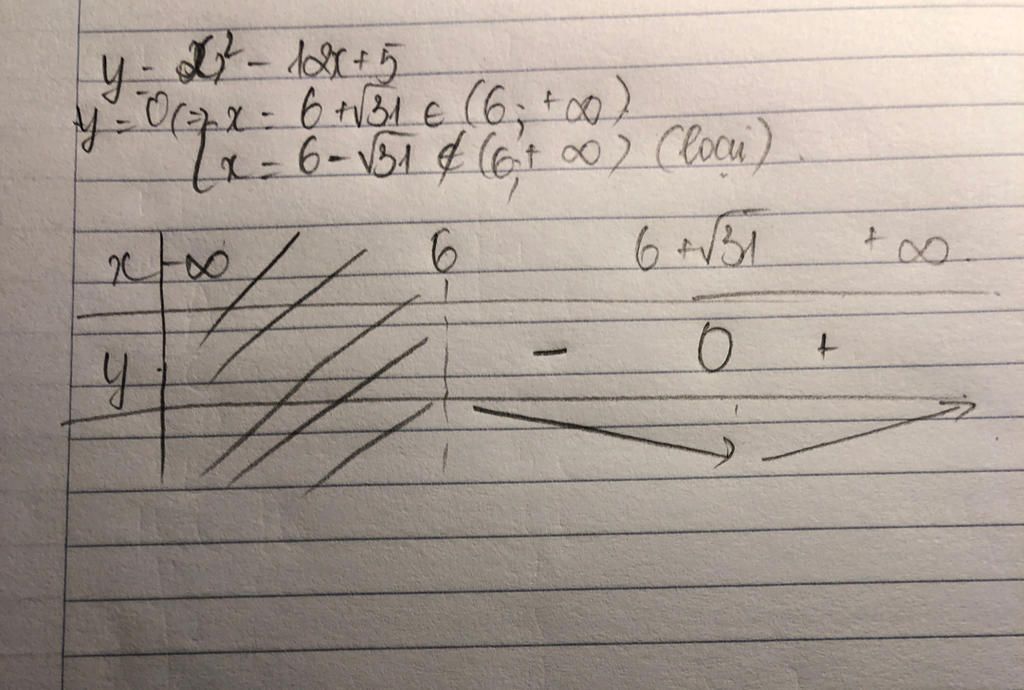 y = x² - 12x + 5
y = 0 <=> [ x = 6 + √31 ∈ (6; +∞)
[ x = 6 - √31 ∉ (6; +∞) (loại).
x | -∞ 6 6 + √31 + ∞.
y - 0 +